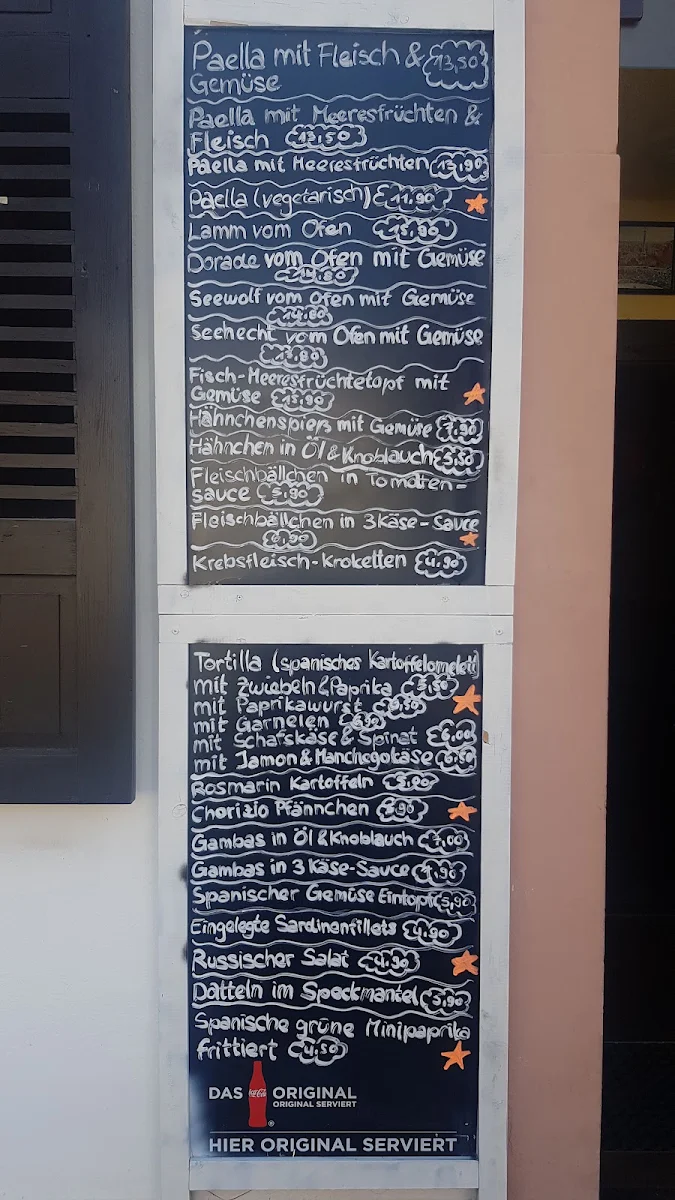 Paella mit Fleisch & 13,50
Gemüse
Paella mit Meeresfrüchten &
Fleisch 13,50
Paella mit Meeresfrüchten 13,90
Paella (vegetarisch) 11,90
Lamm vom Ofen 15,90
Dorade vom Ofen mit Gemüse
14,80
Seewolf vom Ofen mit Gemüse
14,80
Seehecht vom Ofen mit Gemüse
13,80
Fisch-Meeresfrüchtetopf mit
Gemüse 15,90
Hähnchenspiess mit Gemüse 7,90
Hähnchen in Öl & Knoblauch 5,50
Fleischbällchen in Tomaten-
sauce 5,90
Fleischbällchen in 3 Käse-Sauce
6,90
Krebsfleisch-Kroketten 4,90
Tortilla (spanisches Kartoffelomelett)
mit Zwiebeln & Paprika 5,50
mit Paprikawurst
mit Garnelen 6,90
mit Schafskäse & Spinat 6,00
mit Jamon & Manchegokäse 6,50
Rosmarin Kartoffeln 3,90
Chorizio Pfännchen
Gambas in Öl & Knoblauch 7,00
Gambas in 3 Käse-Sauce
Spanischer Gemüse Eintopf 5,90
Eingelegte Sardinenfillets 4,90
Russischer Salat 4,90
Datteln im Speckmantel 5,90
Spanische grüne Minipaprika
frittiert 4,50
DAS Coca-Cola ORIGINAL
ORIGINAL SERVIERT
HIER ORIGINAL SERVIERT